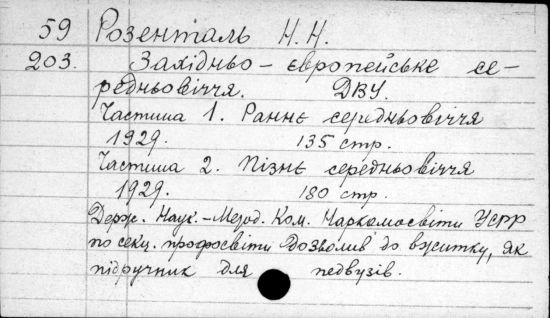 59 Розенталь Н. Н.
203. Західньо-європейське се-
редньовіччя. ДВУ.
Частина 1. Раннє середньовіччя
1929. 135 стр.
Частина 2. Пізнє середньовіччя
1929. 180 стр.
Держ. Наук.-Метод. Ком. Наркомосвіти УСРР
по секц. профосвіти дозволив до вжитку, як
підручник для педвузів.